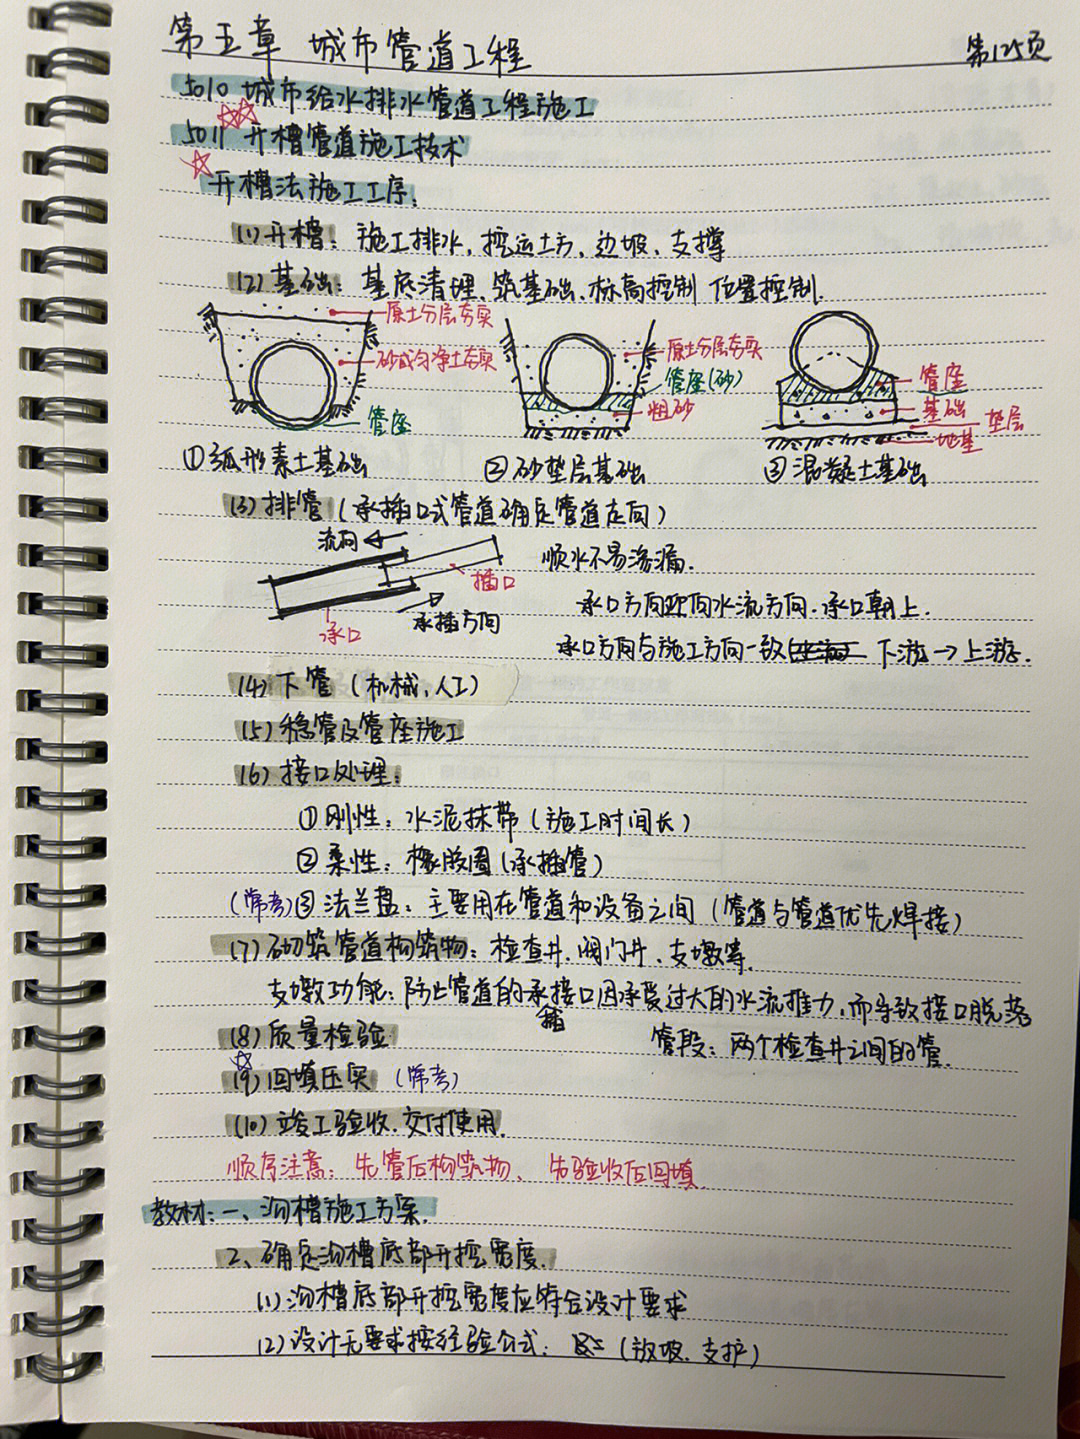 第五章 城市管道工程 第125页
5010 城市给水排水管道工程施工
5011 开槽管道施工技术
开槽法施工工序:
(1) 开槽: 施工排水, 挖运土方, 边坡、支撑
(2) 基础: 基底清理、筑基础、标高控制 位置控制.
原土分层夯实
砂或匀净土夯实
管座
①弧形素土基础
原土分层夯实
管座(砂)
粗砂
②砂垫层基础
管座
基础
垫层
地基
③混凝土基础
(3) 排管 (承插口式管道确定管道走向)
流向
插口
承口
承插方向
顺水不易渗漏.
承口方向迎向水流方向. 承口朝上.
承口方向与施工方向一致 下游→上游.
(4) 下管 (机械, 人工)
(5) 稳管及管座施工
(6) 接口处理:
①刚性: 水泥抹带 (施工时间长)
②柔性: 橡胶圈 (承插管)
(常考)③法兰盘: 主要用在管道和设备之间 (管道与管道优先焊接)
(7) 砌筑管道构筑物: 检查井. 阀门井、支墩等.
支墩功能: 防止管道的承插接口因承受过大的水流推力, 而导致接口脱落
(8) 质量检验
管段: 两个检查井之间的管.
(9) 回填压实 (常考)
(10) 竣工验收. 交付使用.
顺序注意: 先管后构筑物、先验收后回填.
教材: 一、沟槽施工方案.
2、确定沟槽底部开挖宽度.
(1) 沟槽底部开挖宽度应符合设计要求
(2) 设计无要求按经验公式: B= (放坡. 支护)